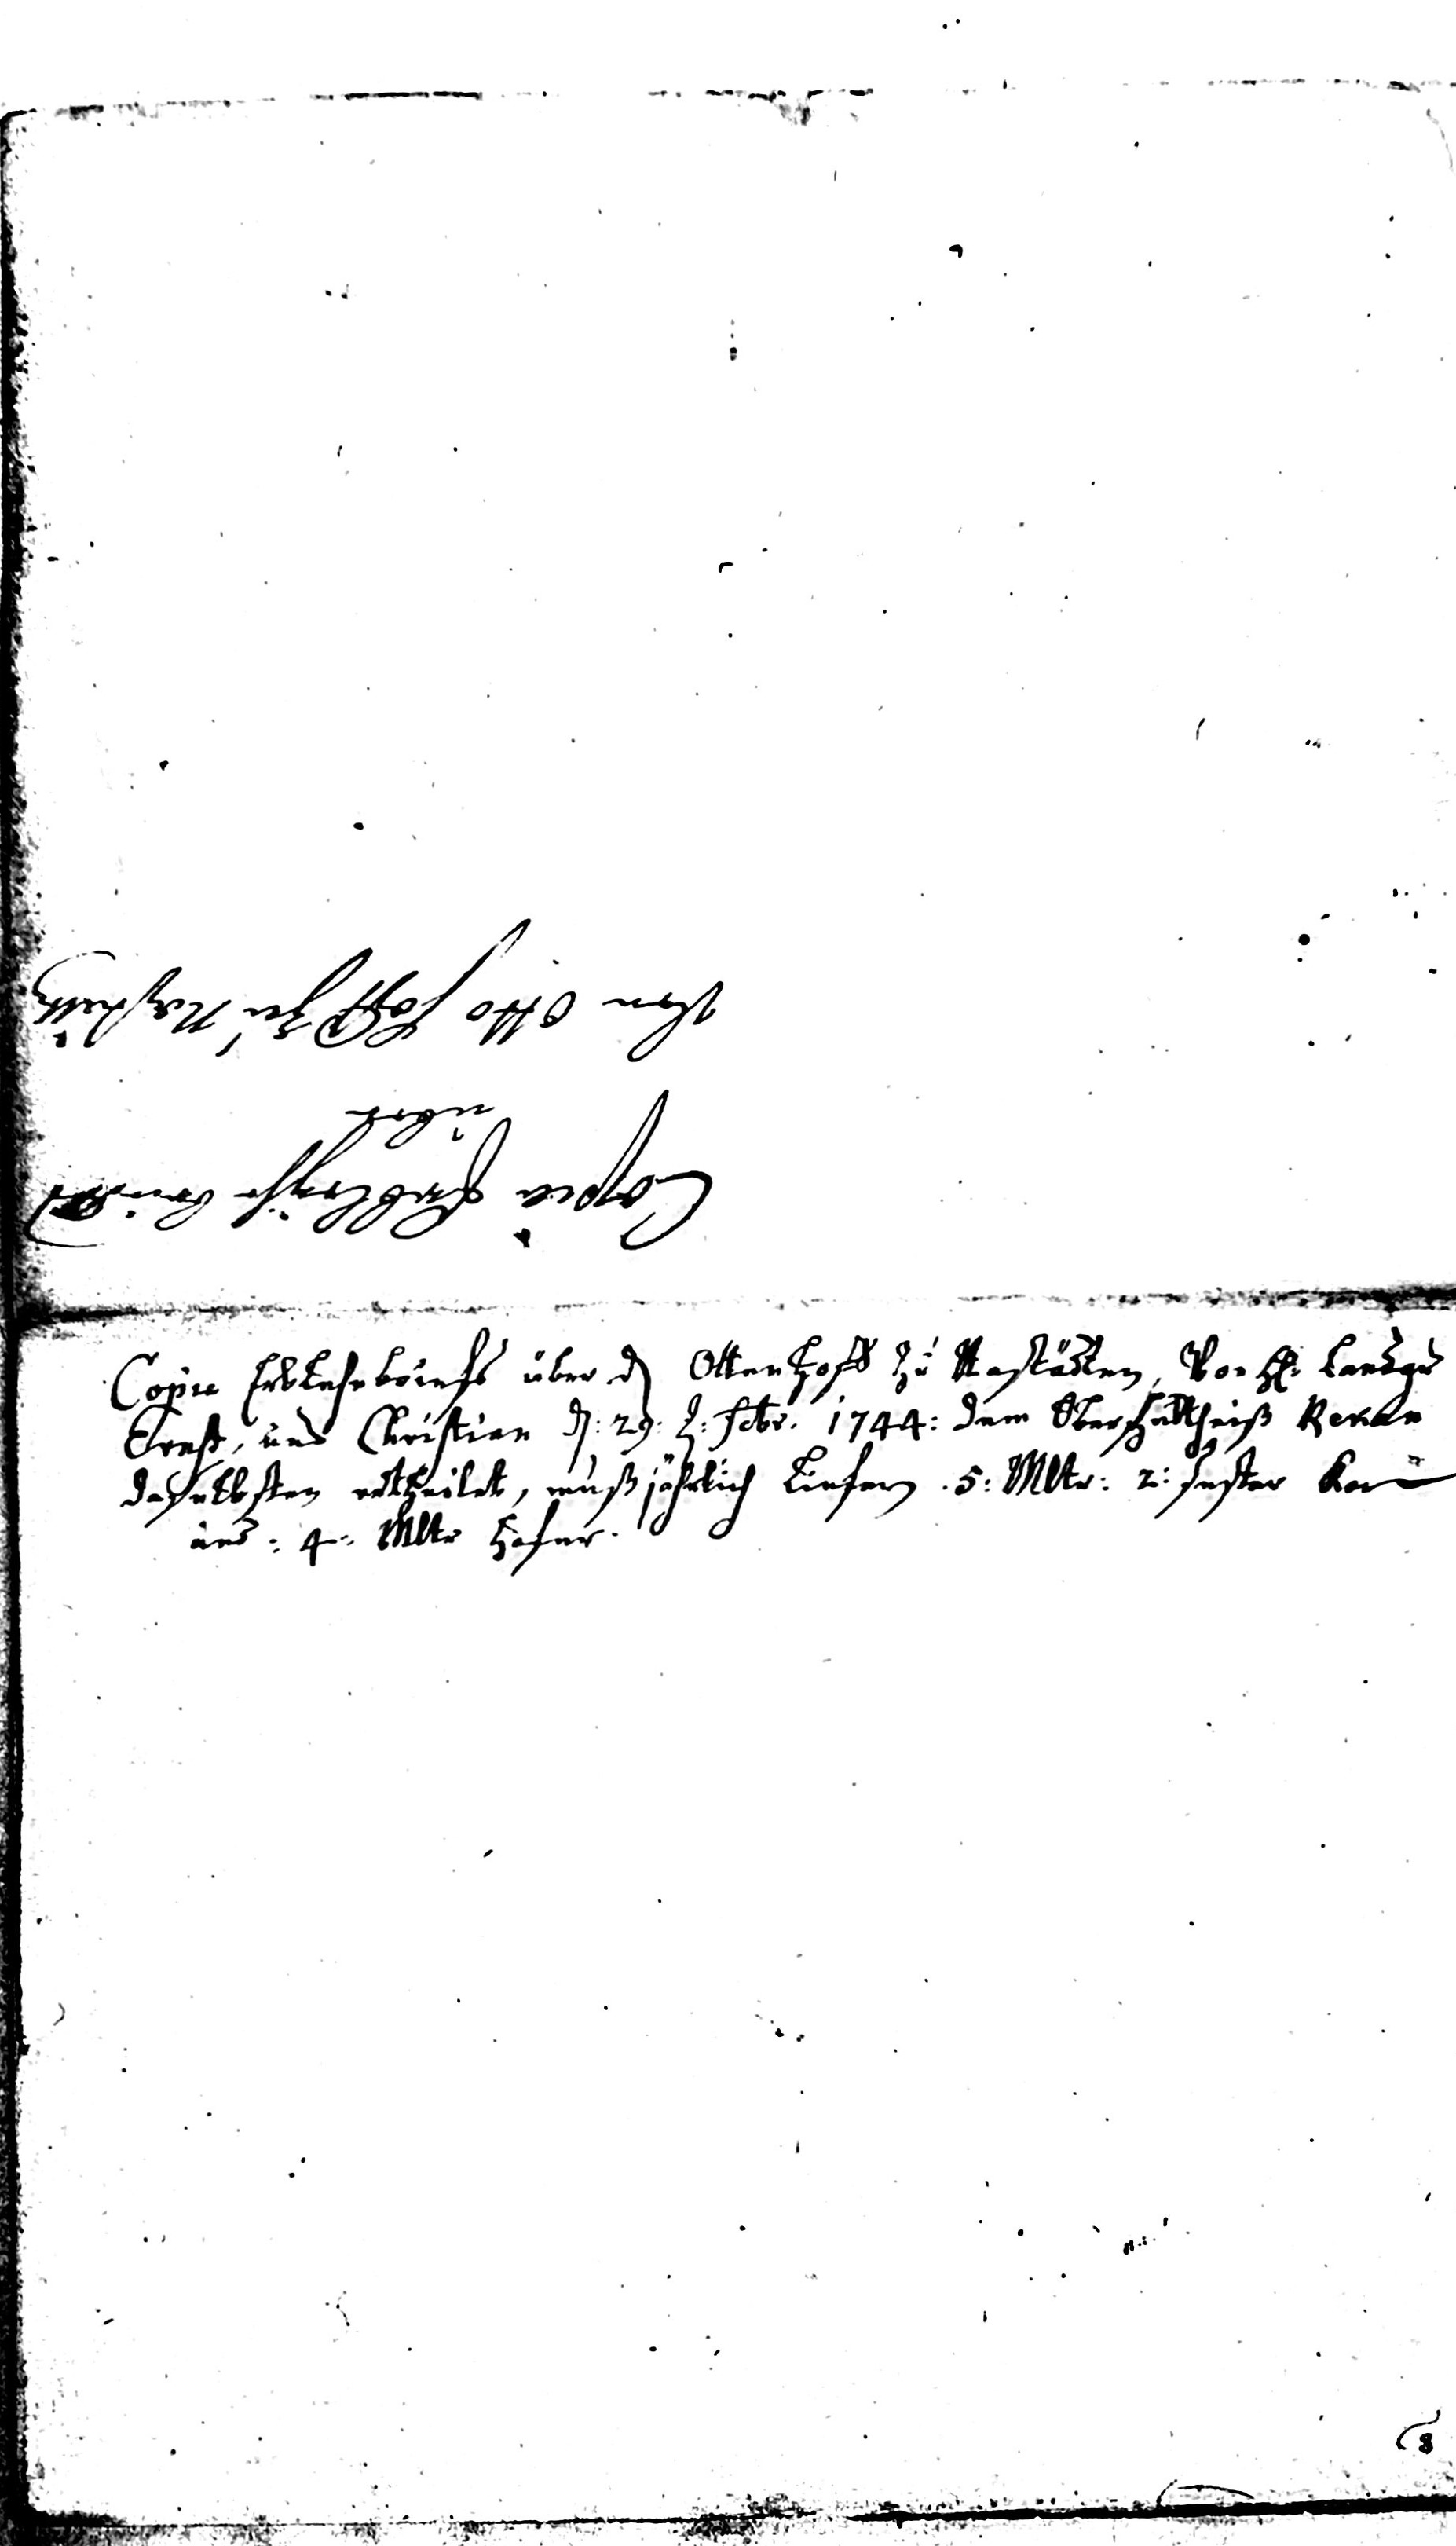 Copia Erbleyhe brieffs
über
den Otto hoff zu Nastätt
Copia Erblehnbriefs über d. Ottenhoff zu Nastädten, Von H. Landgr
Ernst, und Christian d. 29. Febr. 1744: dem Oberschultheiß
daselbsten ertheilet, muß jährlich liefern 5: Mltr: 2: sester Korn
und: 4: Mltr hafer.
8